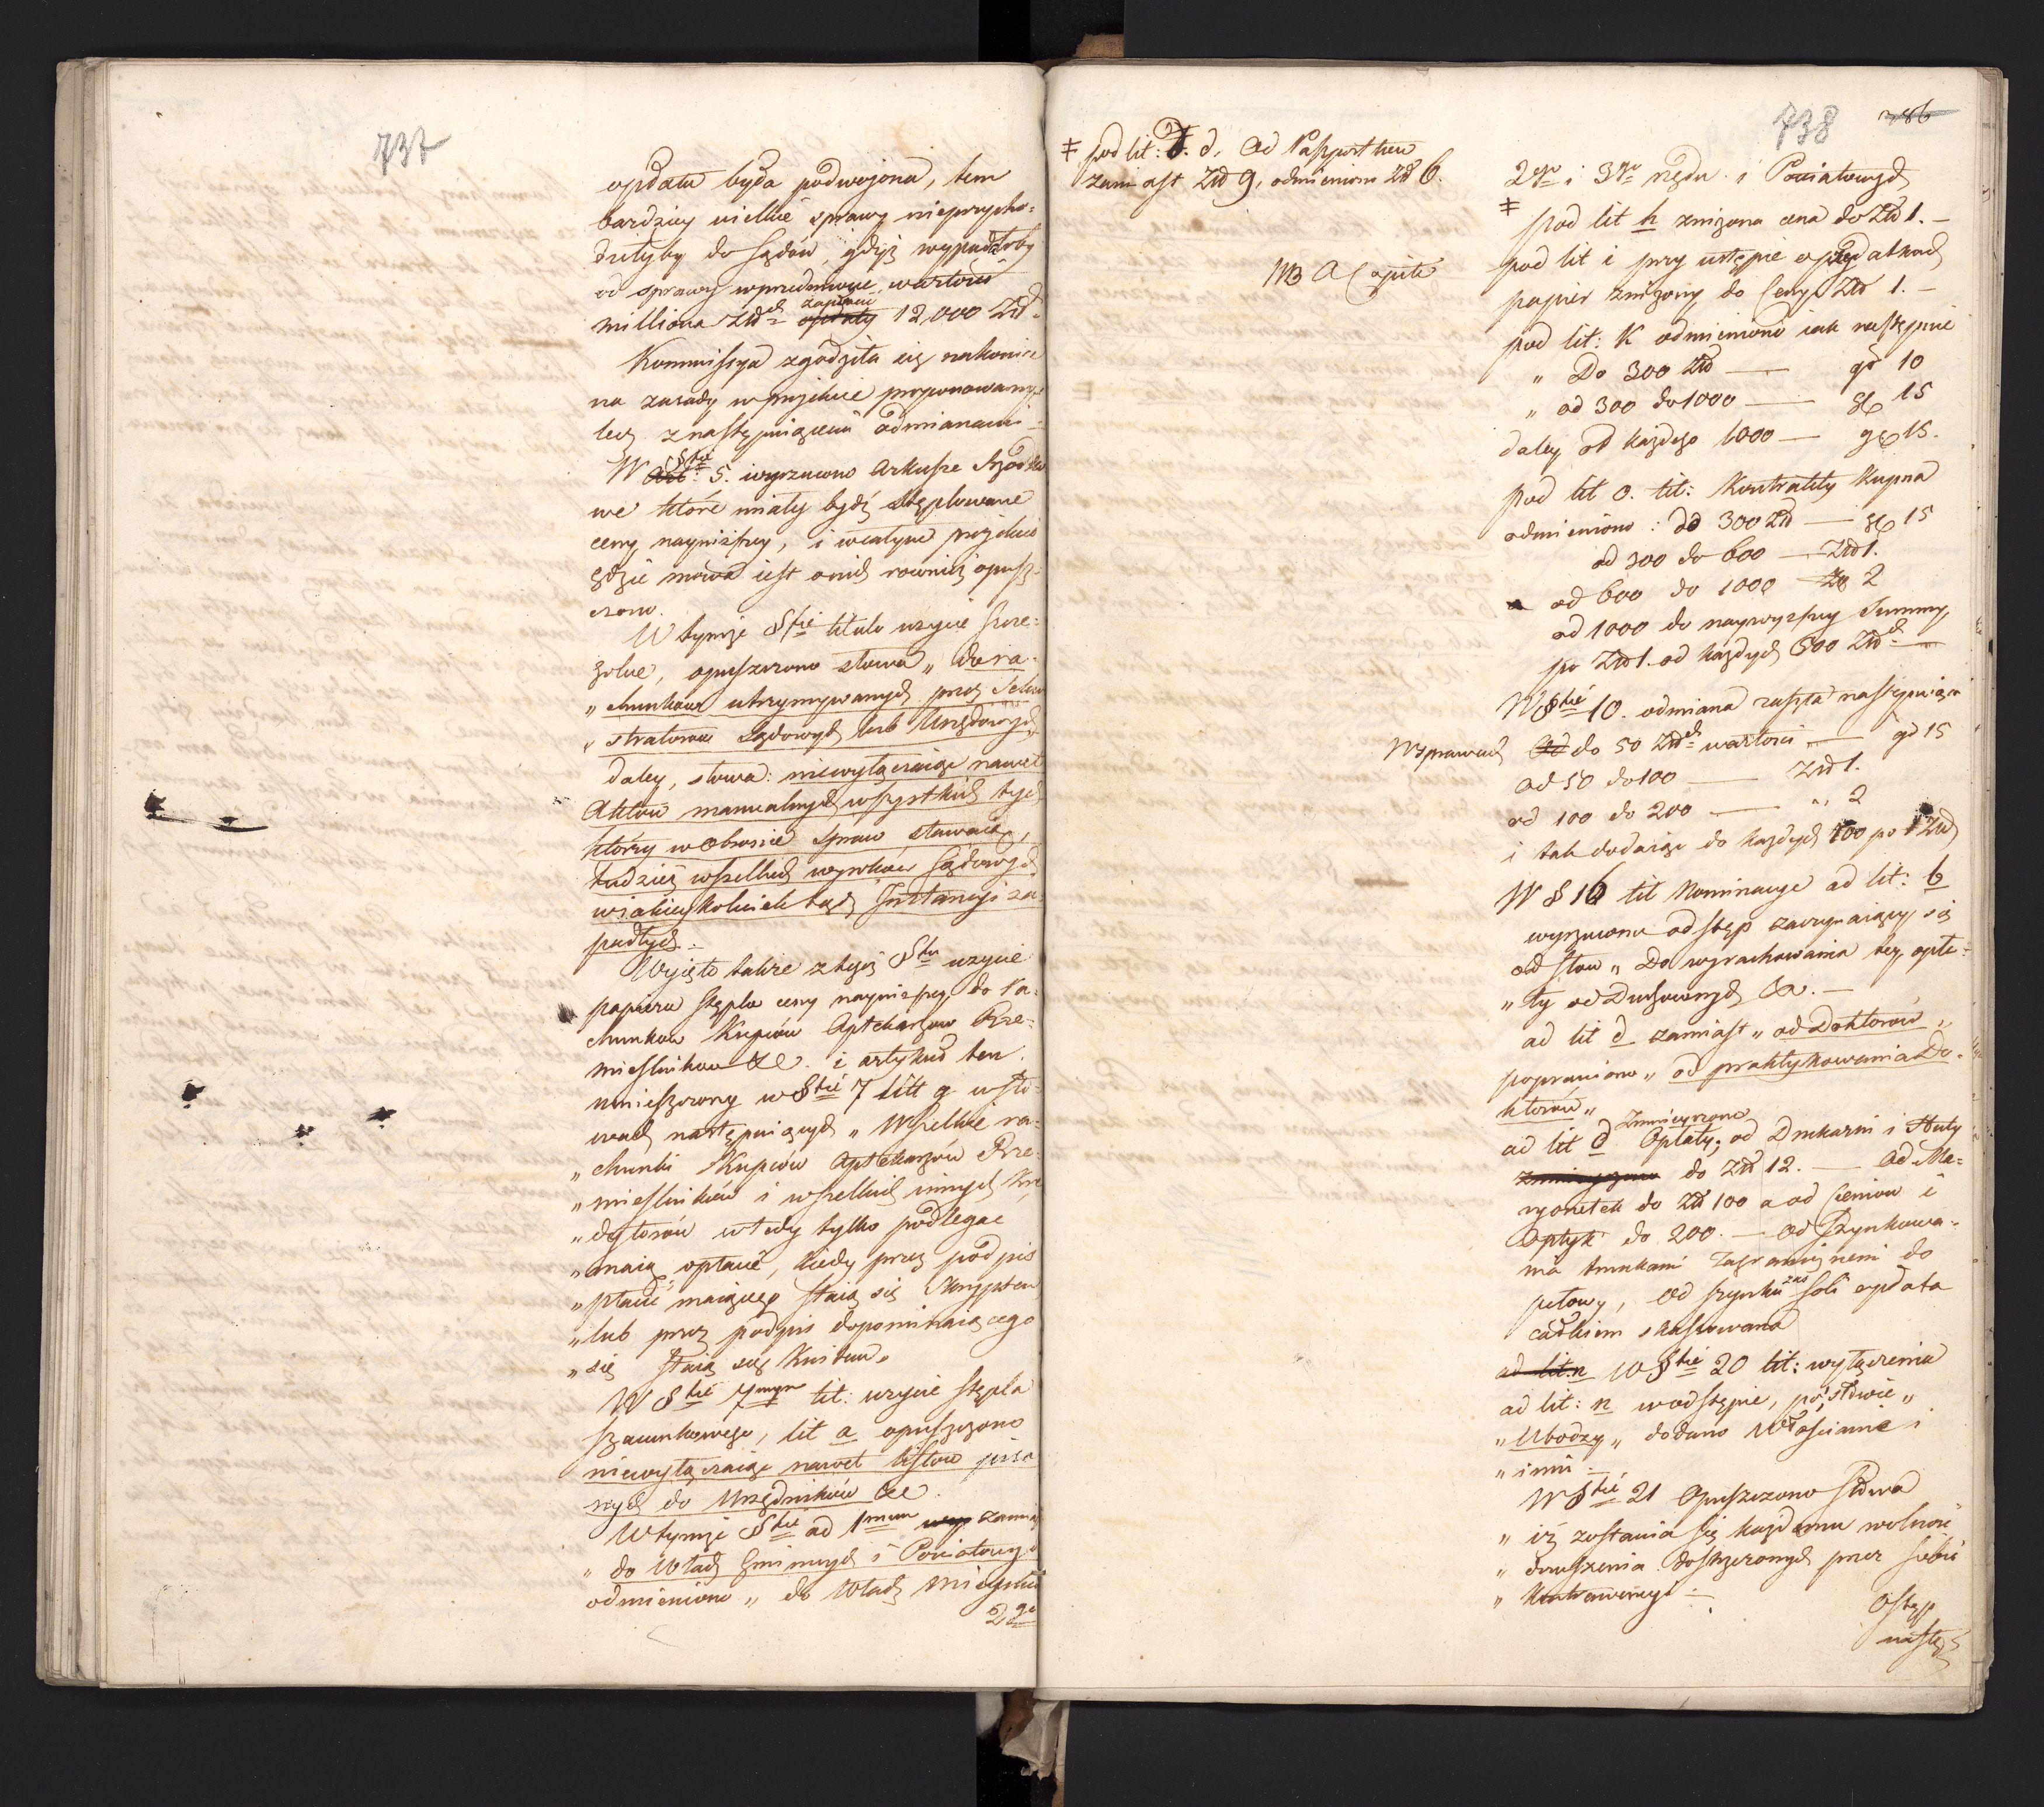 737
opłata była podwojona, tem
bardziey wielkie sprawy nieprzycho=
dziłyby do Sądów, gdyż wypadłoby
od sprawy wprzedmiocie wartości
milliona Złł ch zapłacić opłaty 12,000 Złł.
Kommissya zgodziła się nakoniec
na zasady w projekcie proponowane
lecz znastępuiącemi odmianami =
W Art: §fie 5. wyrzucono Arkusze Srzodko
we które miały bydź stęplowane
ceny nayniższey, i wcałym projekcie
gdzie mowa iest onich rownież opusz=
czono.
W tymże §fie titulo użycie szcze=
gólne, opuszczono słowa „do ra=
„chunków utrzymywanych przez Sekwe
„stratorów Sądowych lub Urzędowych„
daley, słowa: niewyłączaiąc nawet
Aktów manualnych wszystkich tych
którzy w obronie spraw stawaią,
tudzież wszelkich wyroków Sądowych
wiakieykolwiek bądź Instancyi za=
padłych.
Wyjęto także z tegoż §fu użycie
papieru stępla ceny nayniższey do Ra=
chunków Kupców Aptekarzow Rze=
mieślników &c. i artykuł ten
umieszczony w §fie 7 litt g w sło=
wach następuiących „Wszelkie ra=
„chunki Kupców Aptekarzów Rze=
„mieślników i wszelkich innych Kre
„dytorów wtedy tylko podlegać
„maią opłacie, kiedy przez podpis
„płacić maiącego staią się Skryptem
„lub przez podpis dopominaiącego
„się staią się Kwitem„
W §fie 7mym tit: użycie stępla
szacunkowego, lit a opuszczono
niewyłączaiąc nawet listów pisa
nych do Urzędników &c.
W tymże §fie ad 1mum zamiast
„do Władz Gminnych i Powiatowych
odmieniono „do Władz Mieyskich
2go
738 386
‡ pod lit: d. ad Passportów
zamiast Złł 9, odmieniono Zł 6.
NB a Capite
2go i 3go rzędu i Powiatowych
‡
pod lit h zniżona cena do Złł 1. —
pod lit i przy ustępie o podatkach
papier zniżony do Ceny Złł 1. —
pod lit: K odmieniono iak następuie
„ Do 300 Złł — gr 10
„ od 300 do 1000 — gr 15
daley od każdego 1000 — gr 15.
pod lit o. tit: Kontrakty Kupna
odmieniono: do 300 Złł — gr 15
od 300 do 600 — Złł 1.
od 600 do 1000 — Zł 2
od 1000 do naywyższey Summy,
po Złł 1. od każdych 600 Złł ch —
W §fie 10. odmiana zaszła następuiąca
W sprawach Od do 50 Złł ch wartości — gr 15
od 50 do 100 — Złł 1.
od 100 do 200 — „ 2
i tak dodaiąc do każdych 100 po 1 Złł
W § 16 tit Nominacye ad lit: b
wyrzucono odstęp zaczynaiący się
od słow „Do wyrachowania tey opła=
„ty od Duchownych &a. —
ad lit d zamiast „od Doktorów„
poprawiono „od praktykowania Do=
ktorów„
ad lit d Zmnieyszono Opłaty; od Drukarni i Huty
Zmnieyszono do Złł 12. — Od Ma=
ryonetek do Złł 100 a od Cieniow i
Optyk do 200. — Od Szynkowa=
nia trunkami Zagranicznemi do
połowy, Od szynku zaś soli opłata
całkiem skassowana
ad lit: n W §fie 20 tit: wyłączenia
ad lit: n w odstępie, po słowie„
„Ubodzy„ dodano Włościanie i
„inni.
W §fie 21 Opuszczono słowa
„iż zostawia się każdemu wolność
„doniesienia dostrzeżonych przez siebie
„Kontrawencyi. —
Ostęp
nastę